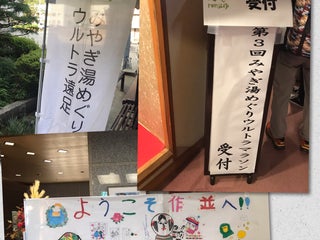 みやぎ湯めぐり
ウルトラ遠足
受付
第3回みやぎ湯めぐりウルトラマラソン
受付
ようこそ作並へ!!